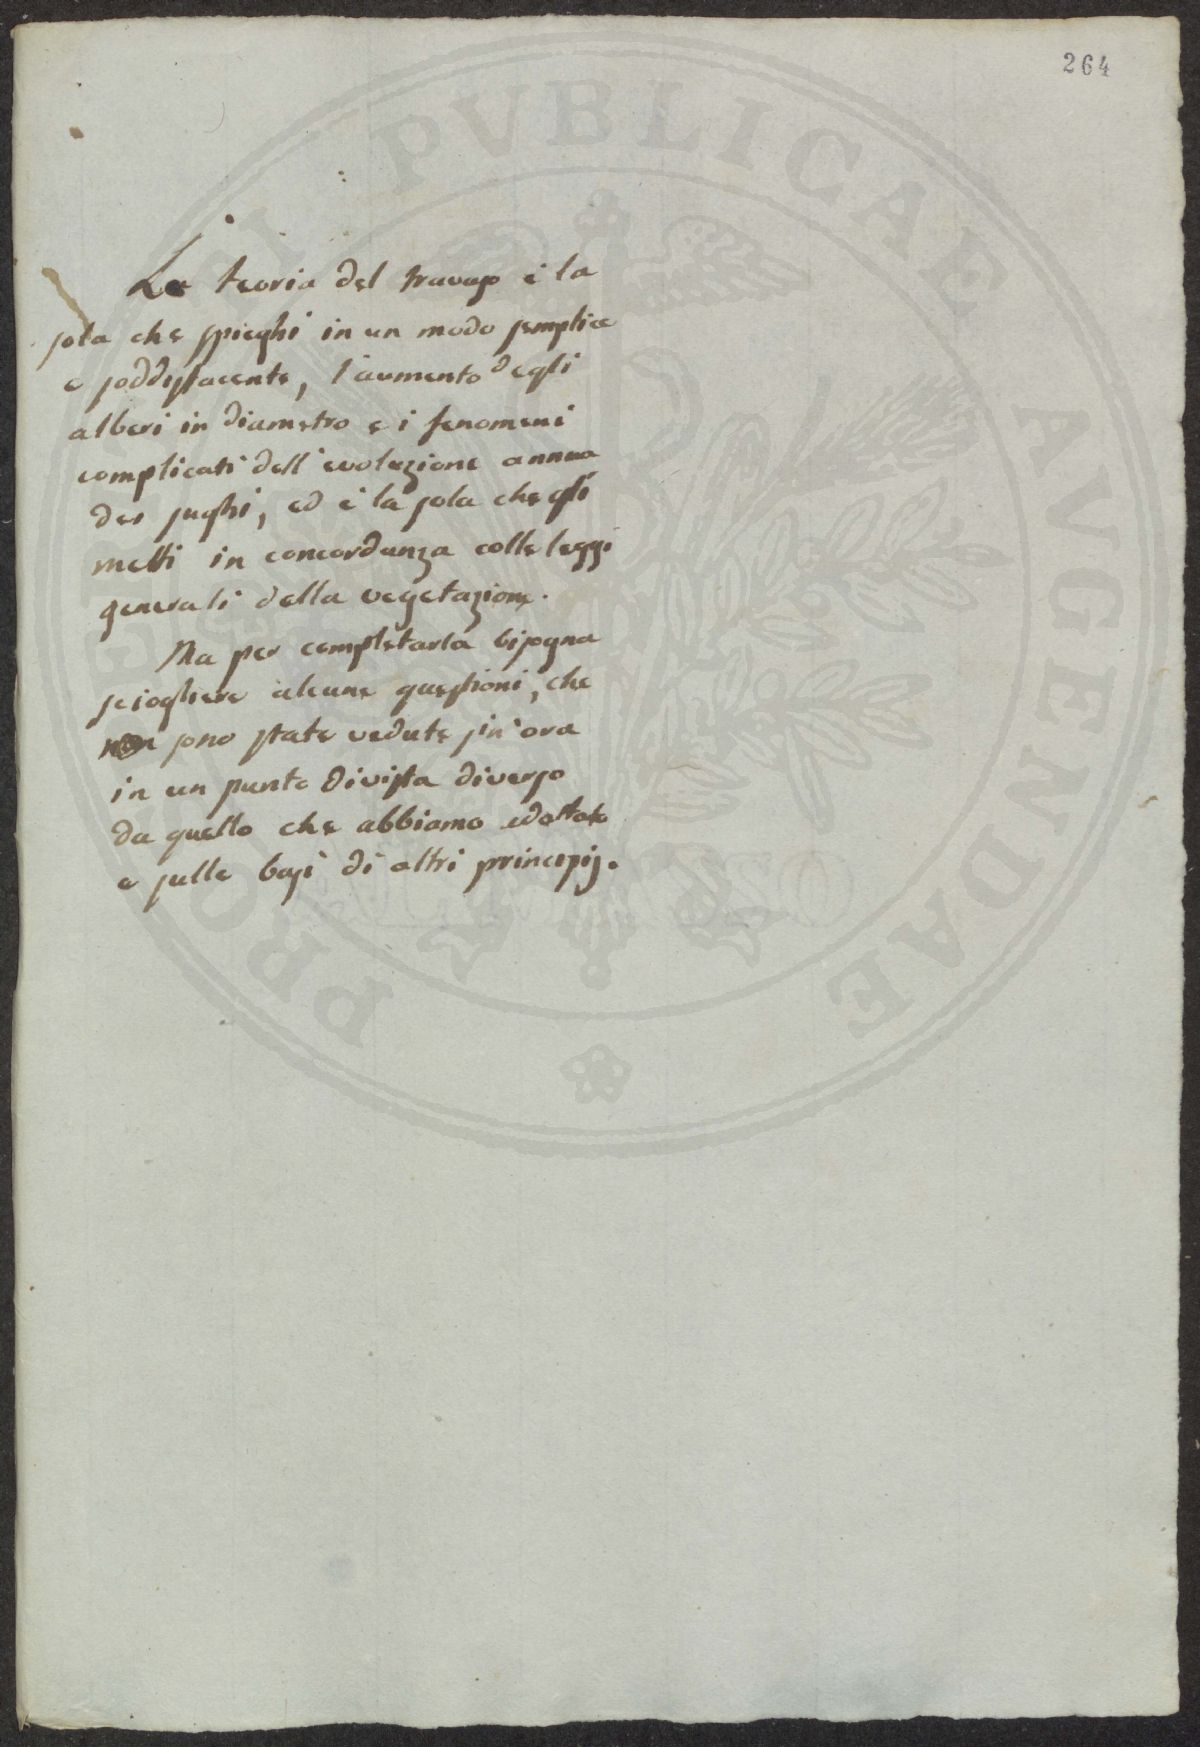 264
PROSPERITATI PVBLICAE AVGENDAE
La teoria del travaso è la
sola che spieghi in un modo semplice
e soddisfacente, l'aumento degli
alberi in diametro e i fenomeni
complicati dell'evoluzione annua
dei sughi, ed è la sola che gli
metti in concordanza colle leggi
generali della vegetazione.
Ma per completarla bisogna
sciogliere alcune questioni, che
non sono state vedute sin'ora
in un punto divista diverso
da quello che abbiamo adottato
e sulle basi di altri principij.